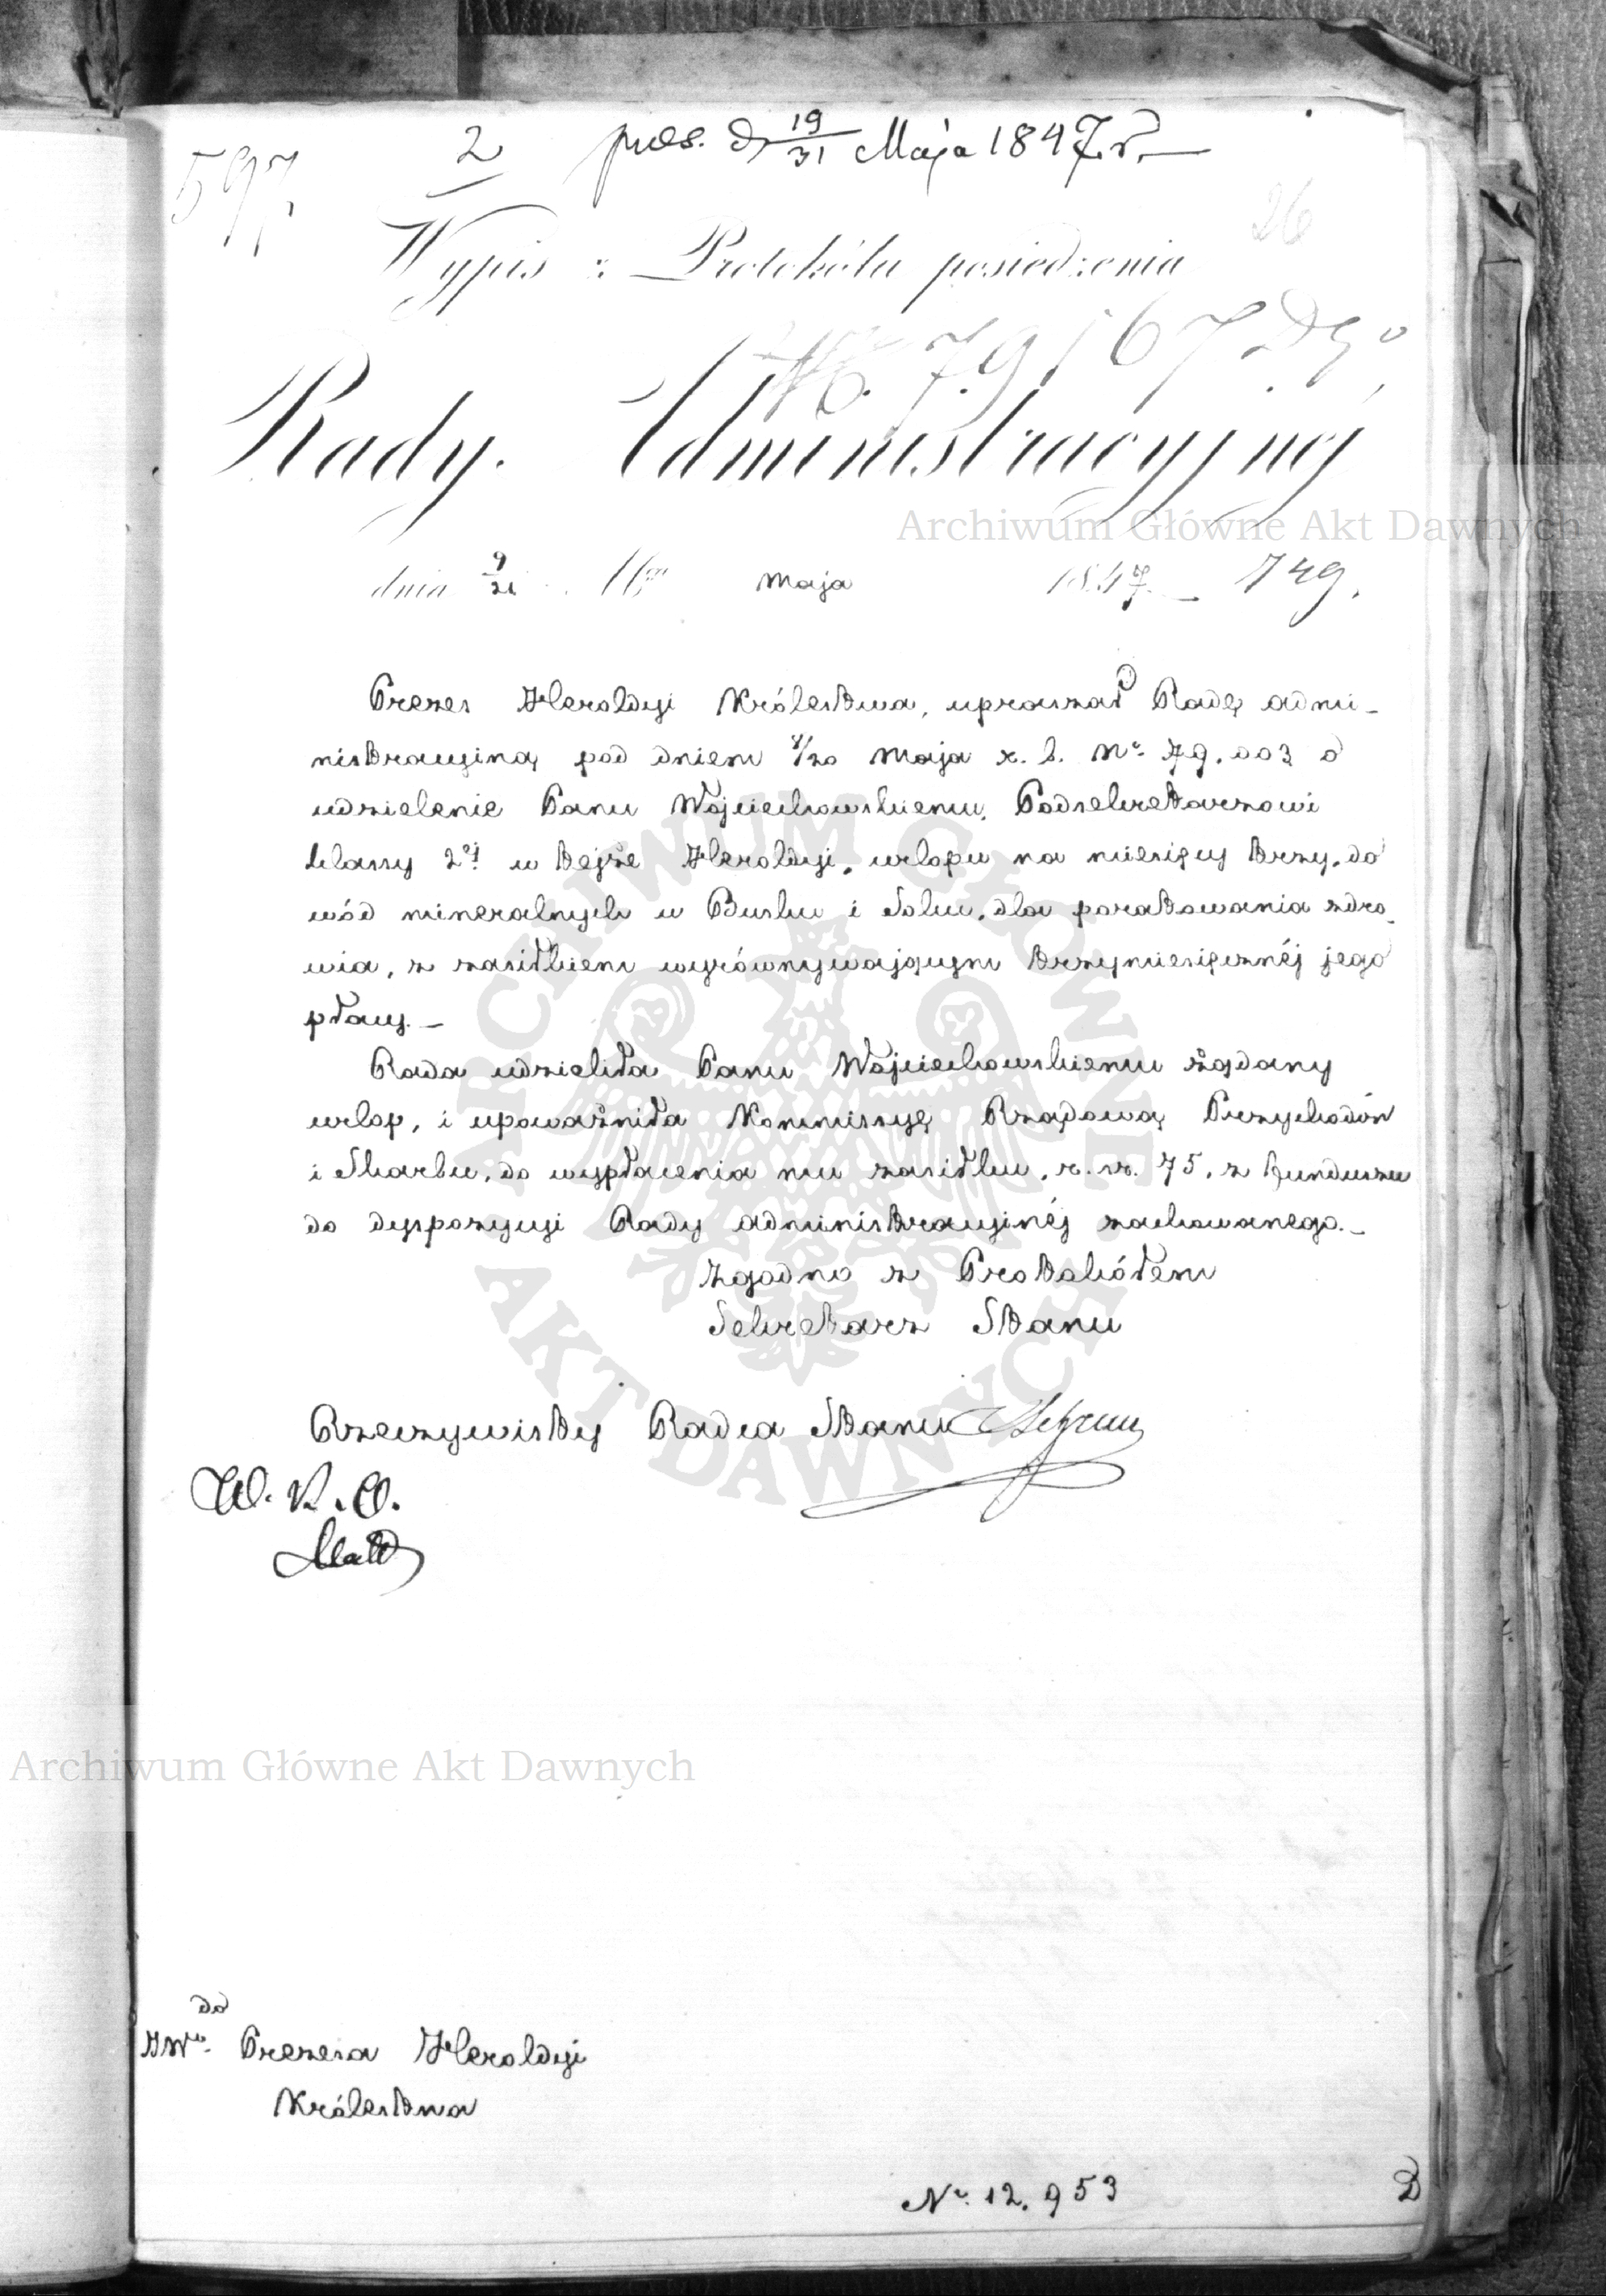 597
2 pres. d. 19/31 Maja 1847. r.
26
Wypis z Protokółu posiedzenia
№. 79167
Rady Administracyjnéj
dnia 9/21 Mca Maja 1847. 749.
Prezes Heroldyi Królestwa, upraszał Radę admi-
nistracyiną pod dniem 8/20 Maja r. b. Nr. 79.003 o
udzielenie Panu Wojciechowskiemu, Podsekretarzowi
klassy 2éj w tejże Heroldyi, urlopu na miesięcy trzy, do
wód mineralnych w Busku i Solcu, dla poratowania zdro-
wia, z zasiłkiem wyrównywającym trzymiesięcznéj jego
płacy.—
Rada udzieliła Panu Wojciechowskiemu żądany
urlop, i upoważniła Kommissyę Rządową Przychodów
i Skarbu, do wypłacenia mu zasiłku, r. sr. 75, z funduszu
do dyspozycyi Rady administracyinéj zachowanego.—
Zgodno z Protokółem
Sekretarz Stanu
Rzeczywisty Radca Stanu
do
JWo. Prezesa Heroldyi
Królestwa
Nr. 12.953
D
Archiwum Główne Akt Dawnych
Archiwum Główne Akt Dawnych
ARCHIWUM GŁÓWNE AKT DAWNYCH